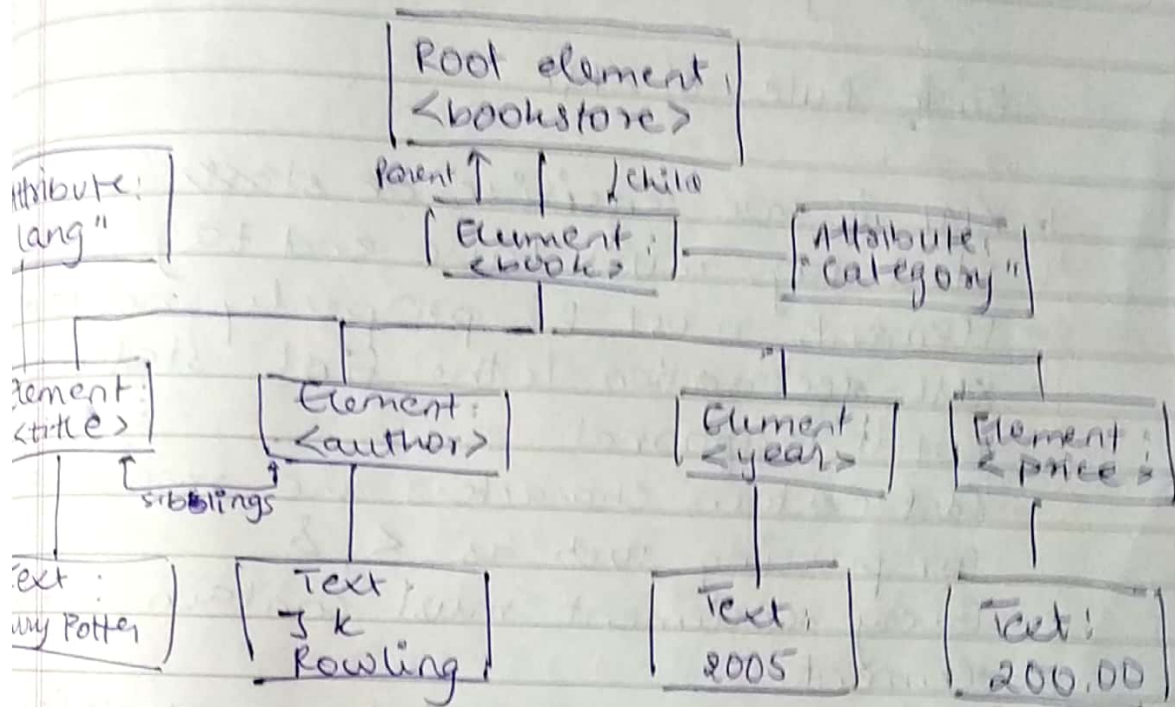 Root element:
<bookstore>
Parent
child
ttribute:
lang"
Element:
<book>
Attribute:
"category"
lement:
<title>
Element:
<author>
Element:
<year>
Element:
<price>
siblings
ext:
rry Potter
Text:
J k
Rowling
Text:
2005
Text:
200.00